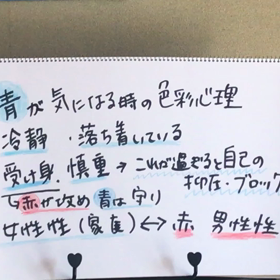 青が気になる時の色彩心理
冷静・落ち着いている
受け身・慎重→これが過ぎると自己の
抑圧・ブロック
↳赤が攻め 青は守り
女性性(家庭)↔赤 男性性